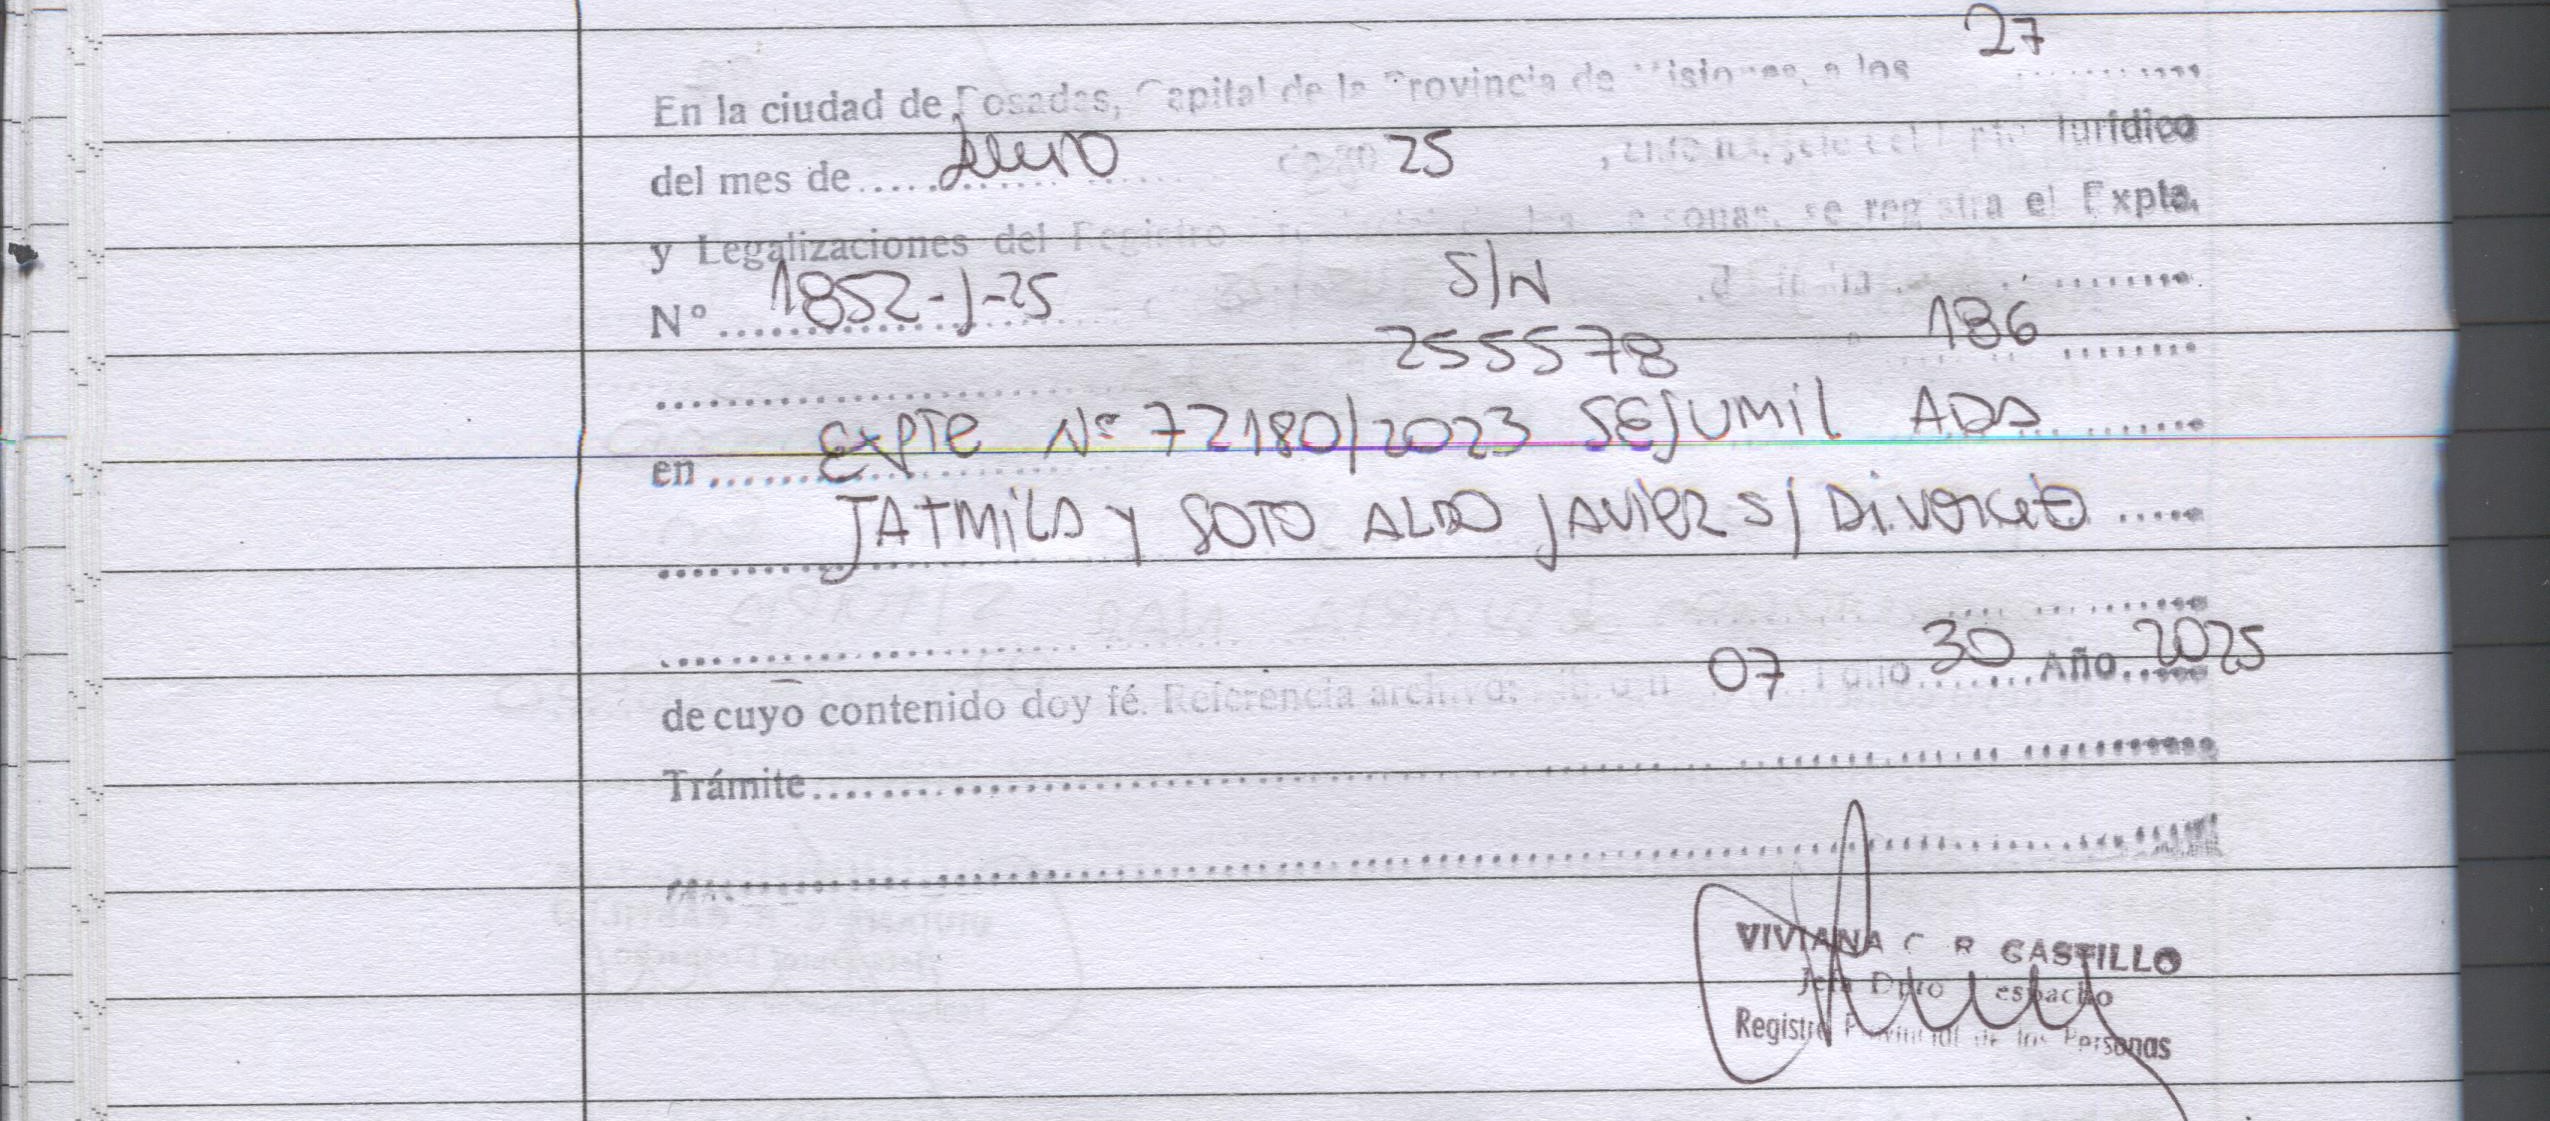 27
En la ciudad de Posadas, Capital de la Provincia de Misiones, a los
del mes de Junio de 20 25 Jurídico
y Legalizaciones del Registro se registra el Expte.
Nº 1852-J-25 S/N
255578 186
en Expte Nº 72180/2023 SEJUMIL ADA
JATMILA Y SOTO ALDO JAVIER S/ Divorcio
de cuyo contenido doy fé. Referencia archivo: 07 Folio 30 Año 2025
Trámite
VIVIANA C R CASTILLO
Jefa Dpto Despacho
Registro Provincial de las Personas